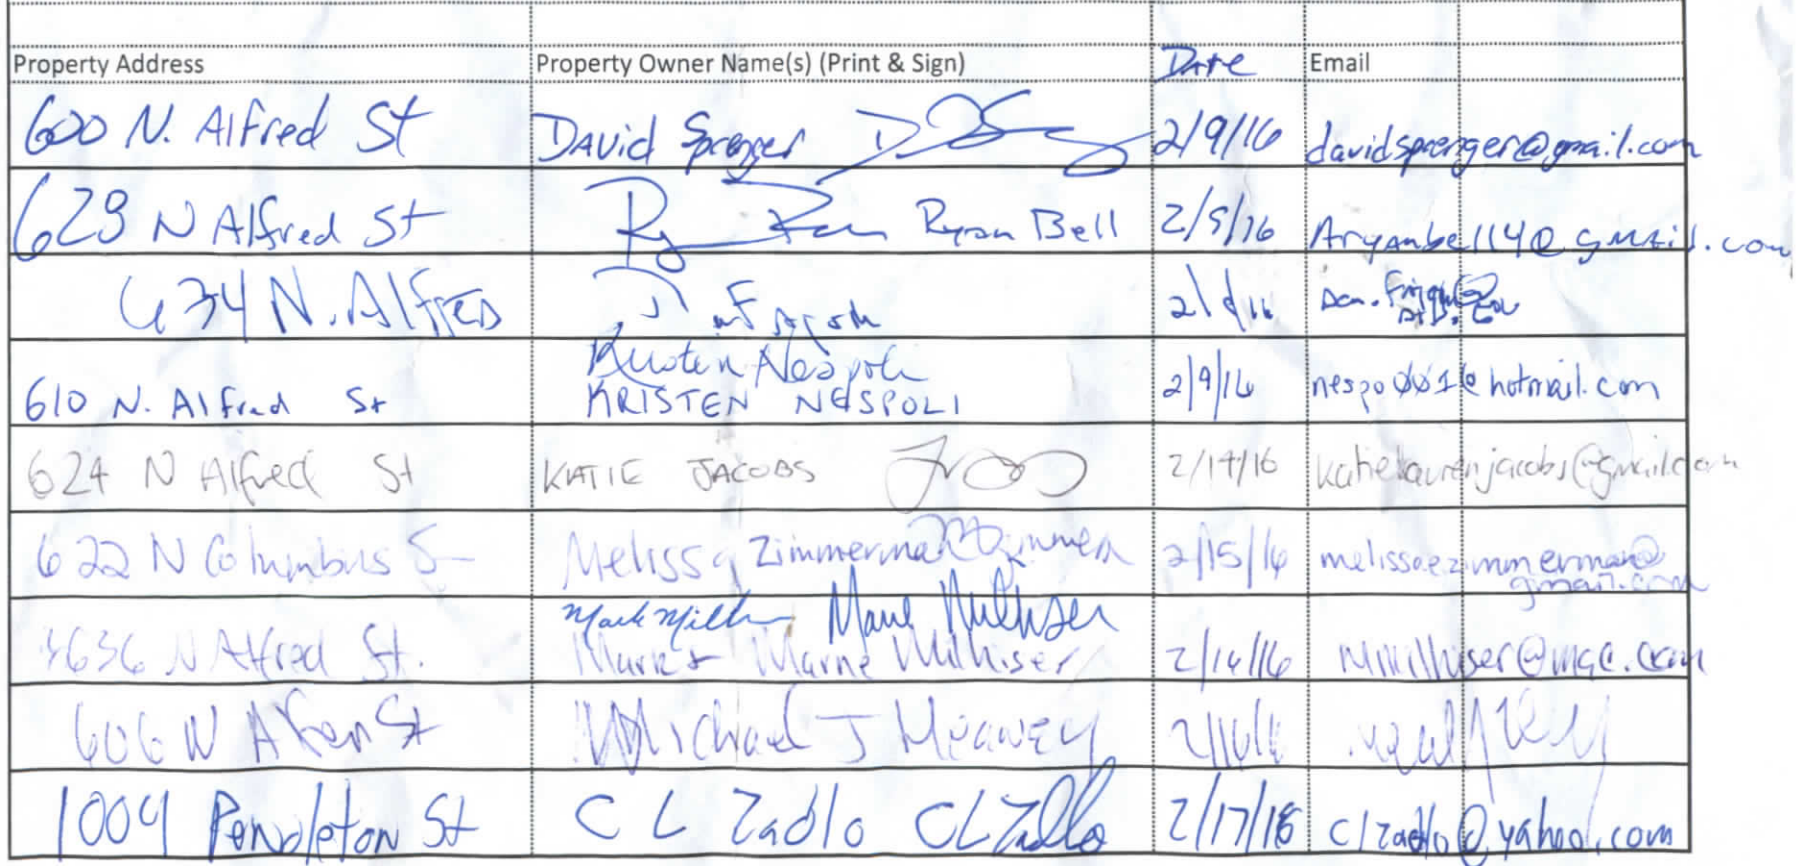 Property Address Property Owner Name(s) (Print & Sign) Date Email
600 N. Alfred St David Sprenger 2/9/16 davidsprenger@gmail.com
628 N Alfred St Ryan Bell 2/9/16 Aryanbell14@gmail.com
634 N. Alfred
Kristen Nespoli
610 N. Alfred St KRISTEN NESPOLI 2/9/16 nespo001@hotmail.com
624 N Alfred St KATIE JACOBS 2/14/16 katielaurenjacobs@gmail.com
622 N Columbus S Melissa Zimmerman 2/15/16 melissaezimmerman@
gmail.com
Mark Milh Marne Milhiser
3636 N Alfred St. Mark & Marne Milhiser 2/14/16
606 N Alfred St Michael J 2/16/16
1004 Pendleton St C L Zadlo CL Zadlo 2/17/16 clzadlo@yahoo.com